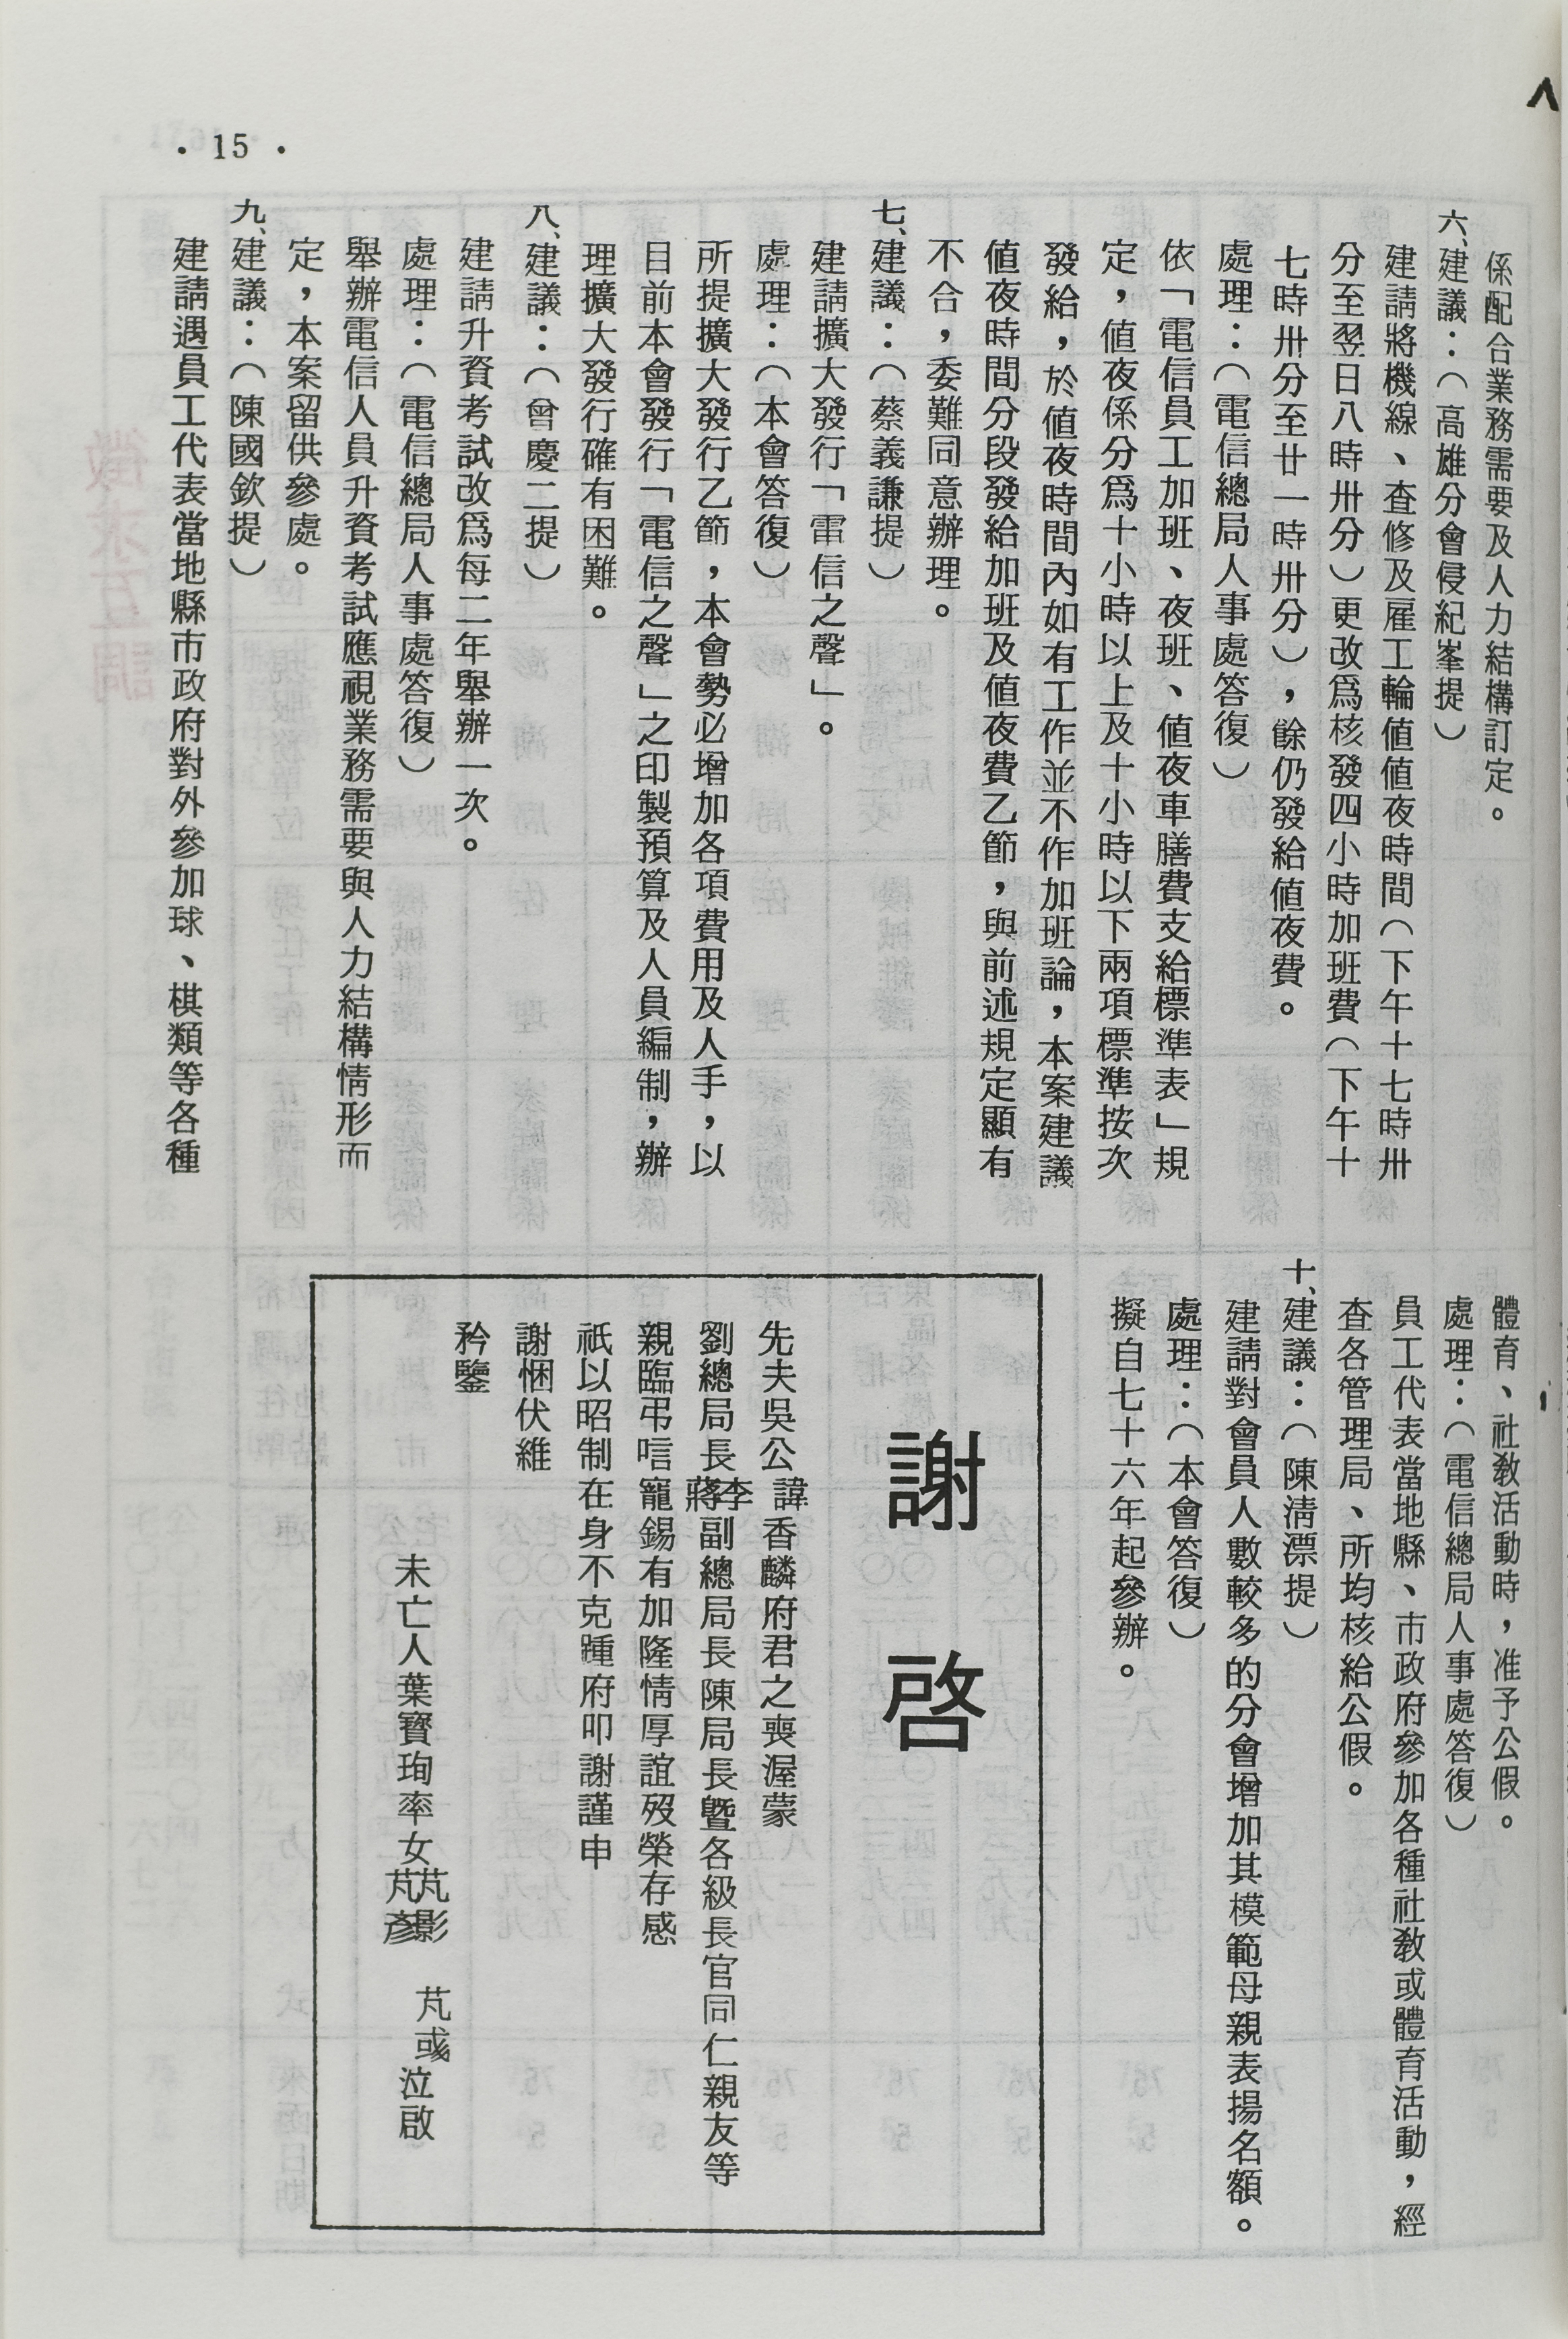 • 15 •
係配合業務需要及人力結構訂定。
六、建議：（高雄分會侵紀峯提）
建請將機線、查修及雇工輪値値夜時間（下午十七時卅
分至翌日八時卅分）更改爲核發四小時加班費（下午十
七時卅分至廿一時卅分），餘仍發給値夜費。
處理：（電信總局人事處答復）
依「電信員工加班、夜班、値夜車膳費支給標準表」規
定，値夜係分爲十小時以上及十小時以下兩項標準按次
發給，於値夜時間內如有工作並不作加班論，本案建議
値夜時間分段發給加班及値夜費乙節，與前述規定顯有
不合，委難同意辦理。
七、建議：（蔡義謙提）
建請擴大發行「電信之聲」。
處理：（本會答復）
所提擴大發行乙節，本會勢必增加各項費用及人手，以
目前本會發行「電信之聲」之印製預算及人員編制，辦
理擴大發行確有困難。
八、建議：（曾慶二提）
建請升資考試改爲每二年舉辦一次。
處理：（電信總局人事處答復）
舉辦電信人員升資考試應視業務需要與人力結構情形而
定，本案留供參處。
九、建議：（陳國欽提）
建請遇員工代表當地縣市政府對外參加球、棋類等各種
體育、社教活動時，准予公假。
處理：（電信總局人事處答復）
員工代表當地縣、市政府參加各種社教或體育活動，經
查各管理局、所均核給公假。
十、建議：（陳淸漂提）
建請對會員人數較多的分會增加其模範母親表揚名額。
處理：（本會答復）
擬自七十六年起參辦。
謝啓
先夫吳公諱香麟府君之喪渥蒙
劉總局長李蔣副總局長陳局長曁各級長官同仁親友等
親臨弔唁寵錫有加隆情厚誼歿榮存感
祇以昭制在身不克踵府叩謝謹申
謝悃伏維
矜鑒
未亡人葉寶珣率女芃影芃彥芃彧泣啟